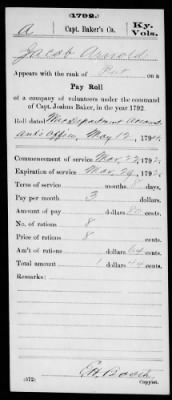 1792.
A | Capt. Baker's Co. | Ky. Vols.
Jacob Arnold
Appears with the rank of Pvt on a
Pay Roll
of a company of volunteers under the command
of Capt. Joshua Baker, in the year 1792.
Roll dated War Department Account-
ant's Office, May 12, 179
Commencement of service Mar. 22, 1792.
Expiration of service Mar. 29, 1792.
Term of service months 8 days.
Pay per month 3 dollars.
Amount of pay dollars 80 cents.
No. of rations 8
Price of rations 8 cents.
Am't of rations dollars 64 cents.
Total amount 1 dollars 44 cents.
Remarks:
E. H. Booch
(572) Copyist.